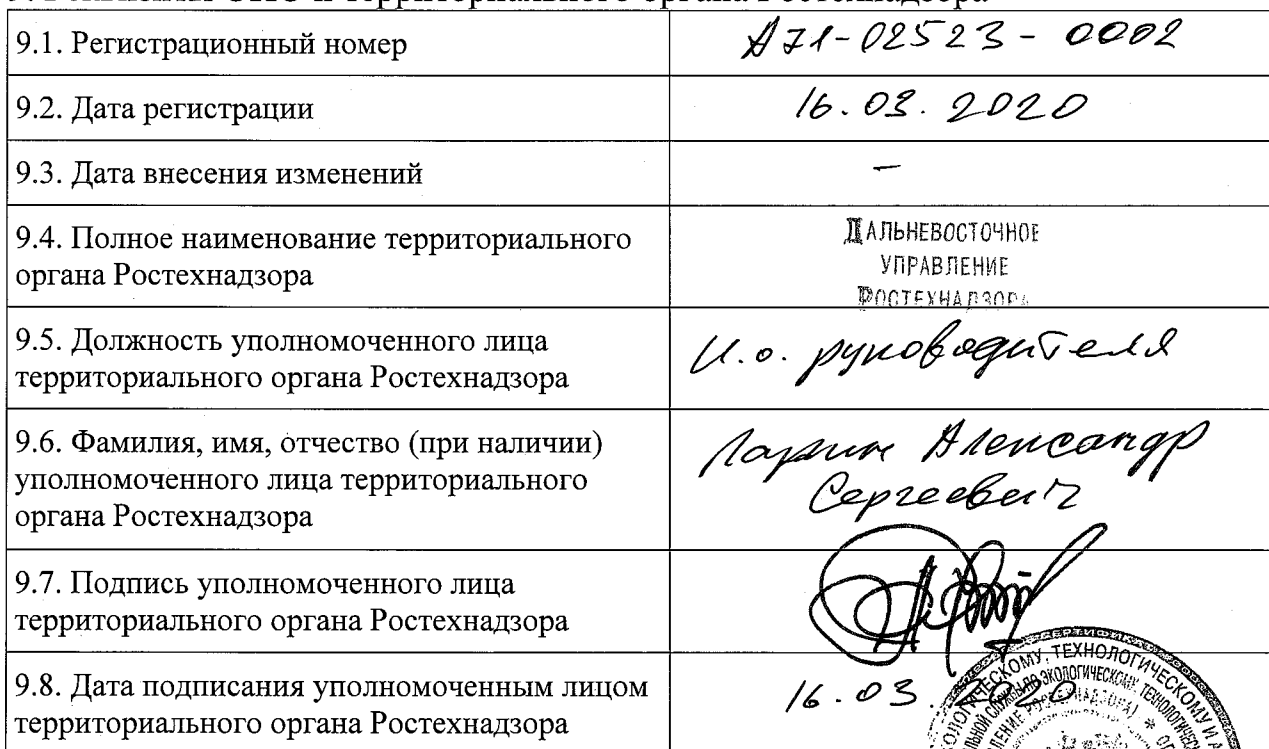 9.1. Регистрационный номер
А71-02523-0002
9.2. Дата регистрации
16.03.2020
9.3. Дата внесения изменений
–
9.4. Полное наименование территориального
органа Ростехнадзора
ДАЛЬНЕВОСТОЧНОЕ
УПРАВЛЕНИЕ
РОСТЕХНАДЗОРА
9.5. Должность уполномоченного лица
территориального органа Ростехнадзора
И.о. руководителя
9.6. Фамилия, имя, отчество (при наличии)
уполномоченного лица территориального
органа Ростехнадзора
Александр
Сергеевич
9.7. Подпись уполномоченного лица
территориального органа Ростехнадзора
9.8. Дата подписания уполномоченным лицом
территориального органа Ростехнадзора
16.03.2020